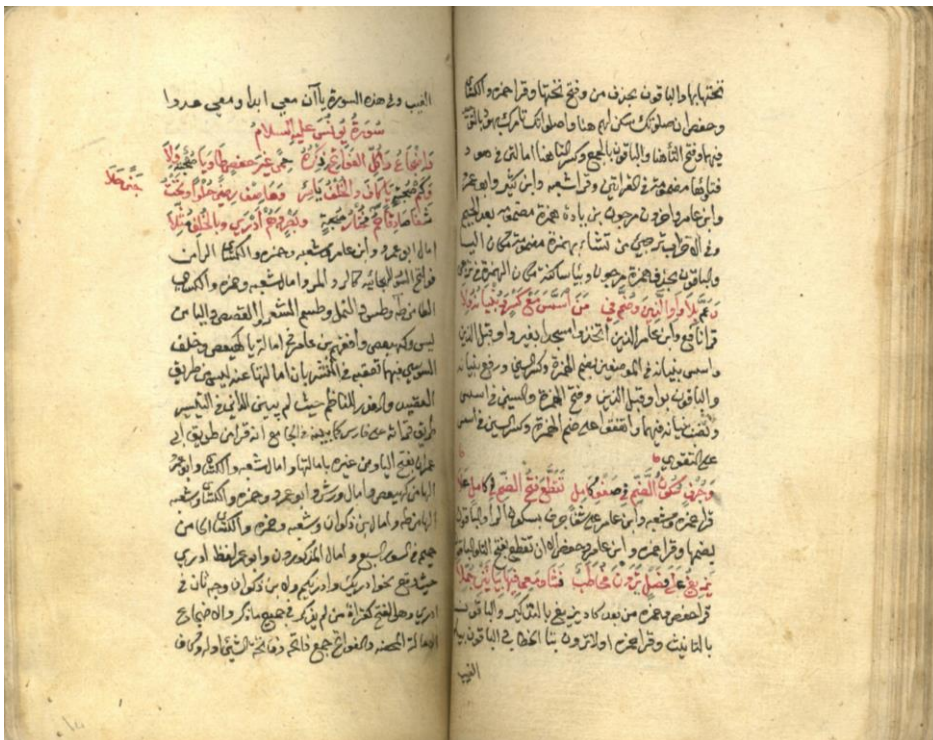 تحتها بها والباقون بحذف من وفتح تحتها وقرا حمزة والكسائي
وحفص ان صلوتك سكن لهم هنا واصلوتك تامرك بهود بالتوحيد
فيهما وفتح التا هنا والباقون بالجمع وكسر التا هنا اما التي في هود
فتاؤها مضمومة في القراتين وقرا شعبه وابن كثير وابو عمرو
وابن عامر واخرون مرجون بزيادة همزة مضمومة بعد الجيم
وفي الاحزاب ترجي من تشاء بهمزة مضمومة مكان اليا
والباقون بحذف همزة مرجون وبيا ساكنة مكان الهمزة في ترجي
وَعَمَّ بِلَا وَاوِ الَّذِينَ وَضُمَّ فِي مَنَ اَسَّسَ مَعْ كَسْرٍ وَبُنْيَانُهُ وِلَا
قرا نافع وابن عامر الذين اتخذوا مسجدا بغير واو قبل الذين
واسس بنيانه في الموضعين بضم الهمزة وكسر السين ورفع بنيانه
والباقون بواو قبل الذين وفتح الهمزة والسين في اسس
ونصب بنيانه فيهما واتفقوا على ضم الهمزة وكسر السين في اسس
على التقوي
وَجُرْفٍ سُكُونُ الضَّمِّ فِي صَفْوِ كَامِلٍ تَقَطَّعَ فَتْحُ الضَّمِّ فِي كَامِلٍ عَلَا
قرا حمزه وشعبه وابن عامر على شفا جرف بسكون الرا والباقون
بضمها وقرا حمزه وابن عامر وحفص الا ان تقطع بفتح التا والباقون
يَزِيغُ عَلَى فَصْلٍ يَرَوْنَ مُخَاطَبٌ فَشَا وَمَعِي فِيهَا بِيَائَيْنِ جُمِّلَا
قرا حفص وحمزه من بعد كاد يزيغ بالتذكير والباقون
بالتانيث وقرا حمزه اولا ترون بتا الخطاب والباقون بيا
الغيب
الغيب وفي هذه السورة ياآن معي ابدا ومعي عدوا
سُورَةُ يُونُسَ عليه السلام
وَاِضْجَاعُ رَا كُلِّ الفَوَاتِحِ ذِكْرُهُ حِمًى غَيْرَ حَفْصٍ طَا وَيَا صُحْبَةٌ وِلَا
وَكَمْ صُحْبَةٍ يَا كَافَ وَالْخُلْفُ يَاسِرٌ وَهَا صِفْ رِضًى حُلْوًا وَتَحْتَ جَنًى حَلَا
شَفَا صَادِقًا حم مُخْتَارُ صُحْبَةٍ وَبَصْرٍ وَهُمْ اَدْرَى وَبِالْخُلْفِ مُثِّلَا
امال ابو عمرو وابن عامر وشعبه وحمزه والكسائي الرا من
فواتح السور الهجائيه كالر والمر وامال شعبه وحمزه والكسائي
الطا من طه وطس في النمل وطسم الشعرا والقصص واليا من
يس وكهيعص وافقهم بن عامر في امالة يا كهيعص وخلف
السوسي فيها تعقبه في النشر بان امالتها عنه ليس من طريق
القصيد والعذر للناظم حيث لم يبين للداني في التيسير
طريق قراته على فارس كما بينه في الجامع انه قرا من طريق ابي
عمران بفتح اليا ومن غيره بامالتها وامال شعبه والكسائي وابو عمرو
الها من كهيعص وامال ورش وابو عمرو وحمزه والكسائي وشعبه
الها من طه وامال بن ذكوان وشعبه وحمزه والكسائي الحا من
حميم في السور السبع وامال المذكورون وابو عمرو لفظ ادري
حيث وقع نحو ادريك وادريكم وله بن ذكوان وجه ثان في
ادري وهو الفتح كقراة من لم يذكر في جميع ما ذكر والاضجاع
الامالة المحضه والفواتح جمع فاتحه وفاتحة الشي اوله وكاف